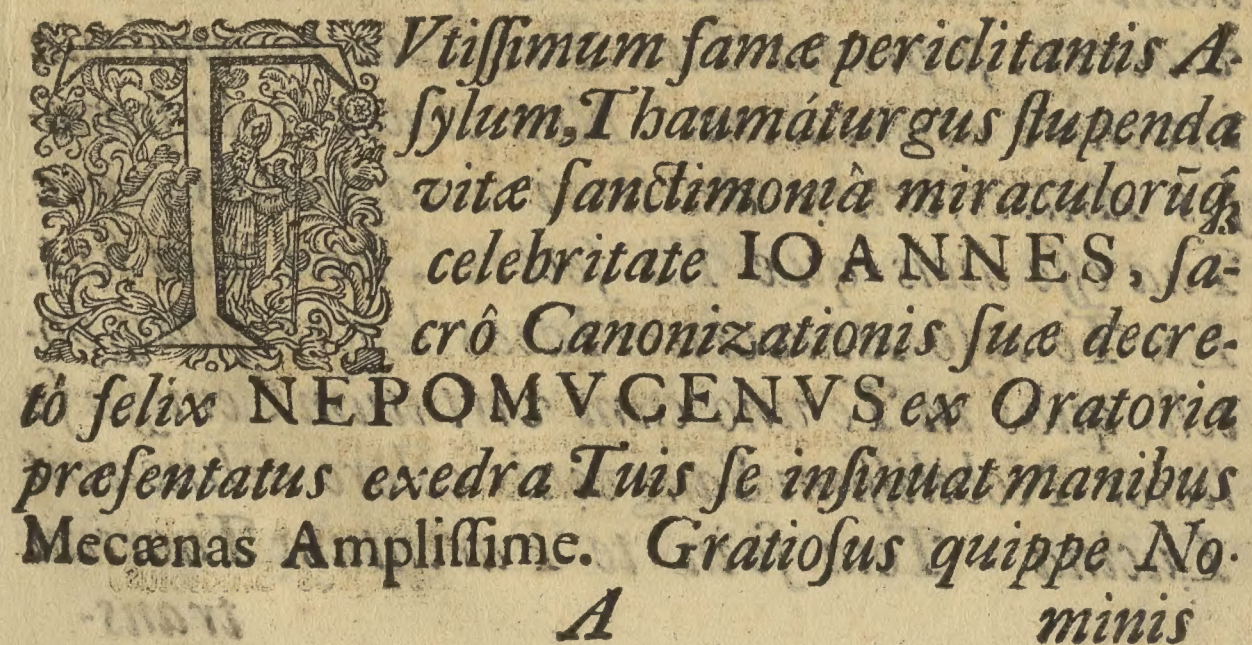 TVtiſſimum famæ periclitantis A-
ſylum, Thaumáturgus ſtupenda
vitæ ſanctimoniâ miraculorūq́ꝫ
celebritate IOANNES, ſa-
crô Canonizationis ſuæ decre-
tô felix NEPOMVCENVS ex Oratoria
præſentatus exedra Tuis ſe inſinuat manibus
Mecænas Ampliſſime. Gratioſus quippe No-
A minis